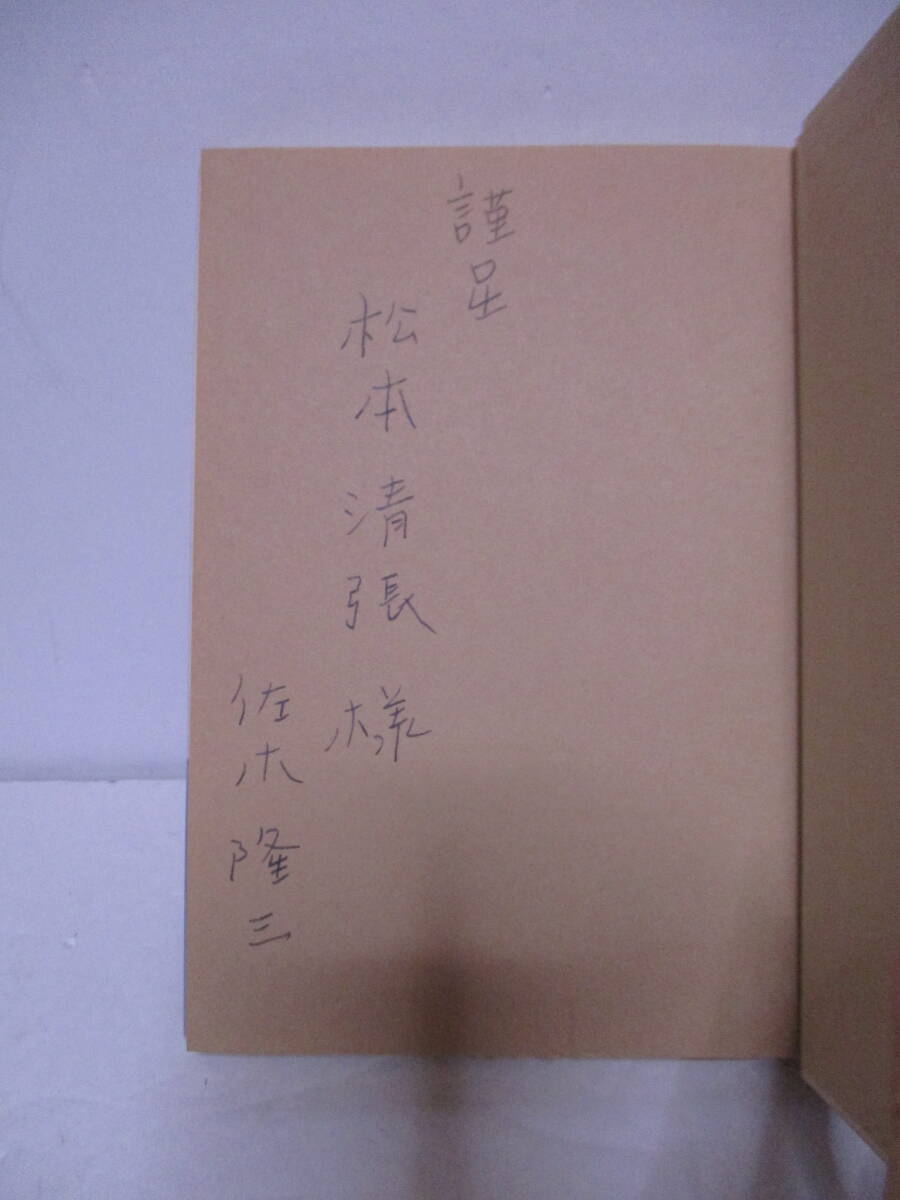 謹呈
松本清張様
佐木隆三